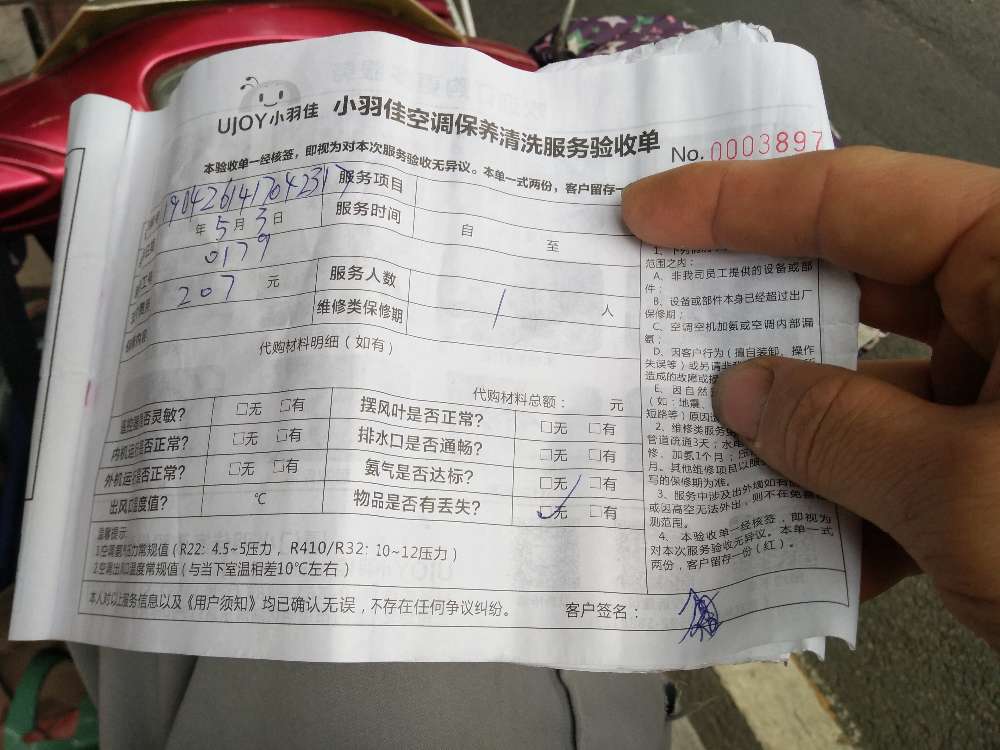 UJOY小羽佳 小羽佳空调保养清洗服务验收单
No. 0003897
本验收单一经核签，即视为对本次服务验收无异议。本单一式两份，客户留存一
服务项目
年 5 月 3 日 服务时间 自 至
0179
207 元 服务人数 1 人
维修类保修期
代购材料明细（如有）
代购材料总额： 元
是否灵敏？ □无 □有 摆风叶是否正常？ □无 □有
内机运 是否正常？ □无 □有 排水口是否通畅？ □无 □有
外机运 是否正常？ □无 □有 氨气是否达标？ □无 □有
出风口温度值？ ℃ 物品是否有丢失？ □无 □有
温馨提示
常规值（R22: 4.5~5压力， R410/R32: 10~12压力）
2.空调出风口温度常规值（与当下室温相差10℃左右）
本人对以上服务信息以及《用户须知》均已确认无误，不存在任何争议纠纷。 客户签名：
范围之内：
A、非我司员工提供的设备或部
件；
B、设备或部件本身已经超过出厂
保修期；
C、空调空机加氨或空调内部漏
氨；
D、因客户行为（擅自装卸、操作
失误等）或另请非
造成的故障或
E、因自然
（如：地震、
短路等）原因
2、维修类服务
管道疏通3天；水电
修、加氨1个月；
月。其他维修项目以
写的保修期为准。
3、服务中涉及出外墙如有
或因高空无法外出，则不在免费
测范围。
4、本验收单一经核签，即视为
对本次服务验收无异议。本单一式
两份，客户留存一份（红）。